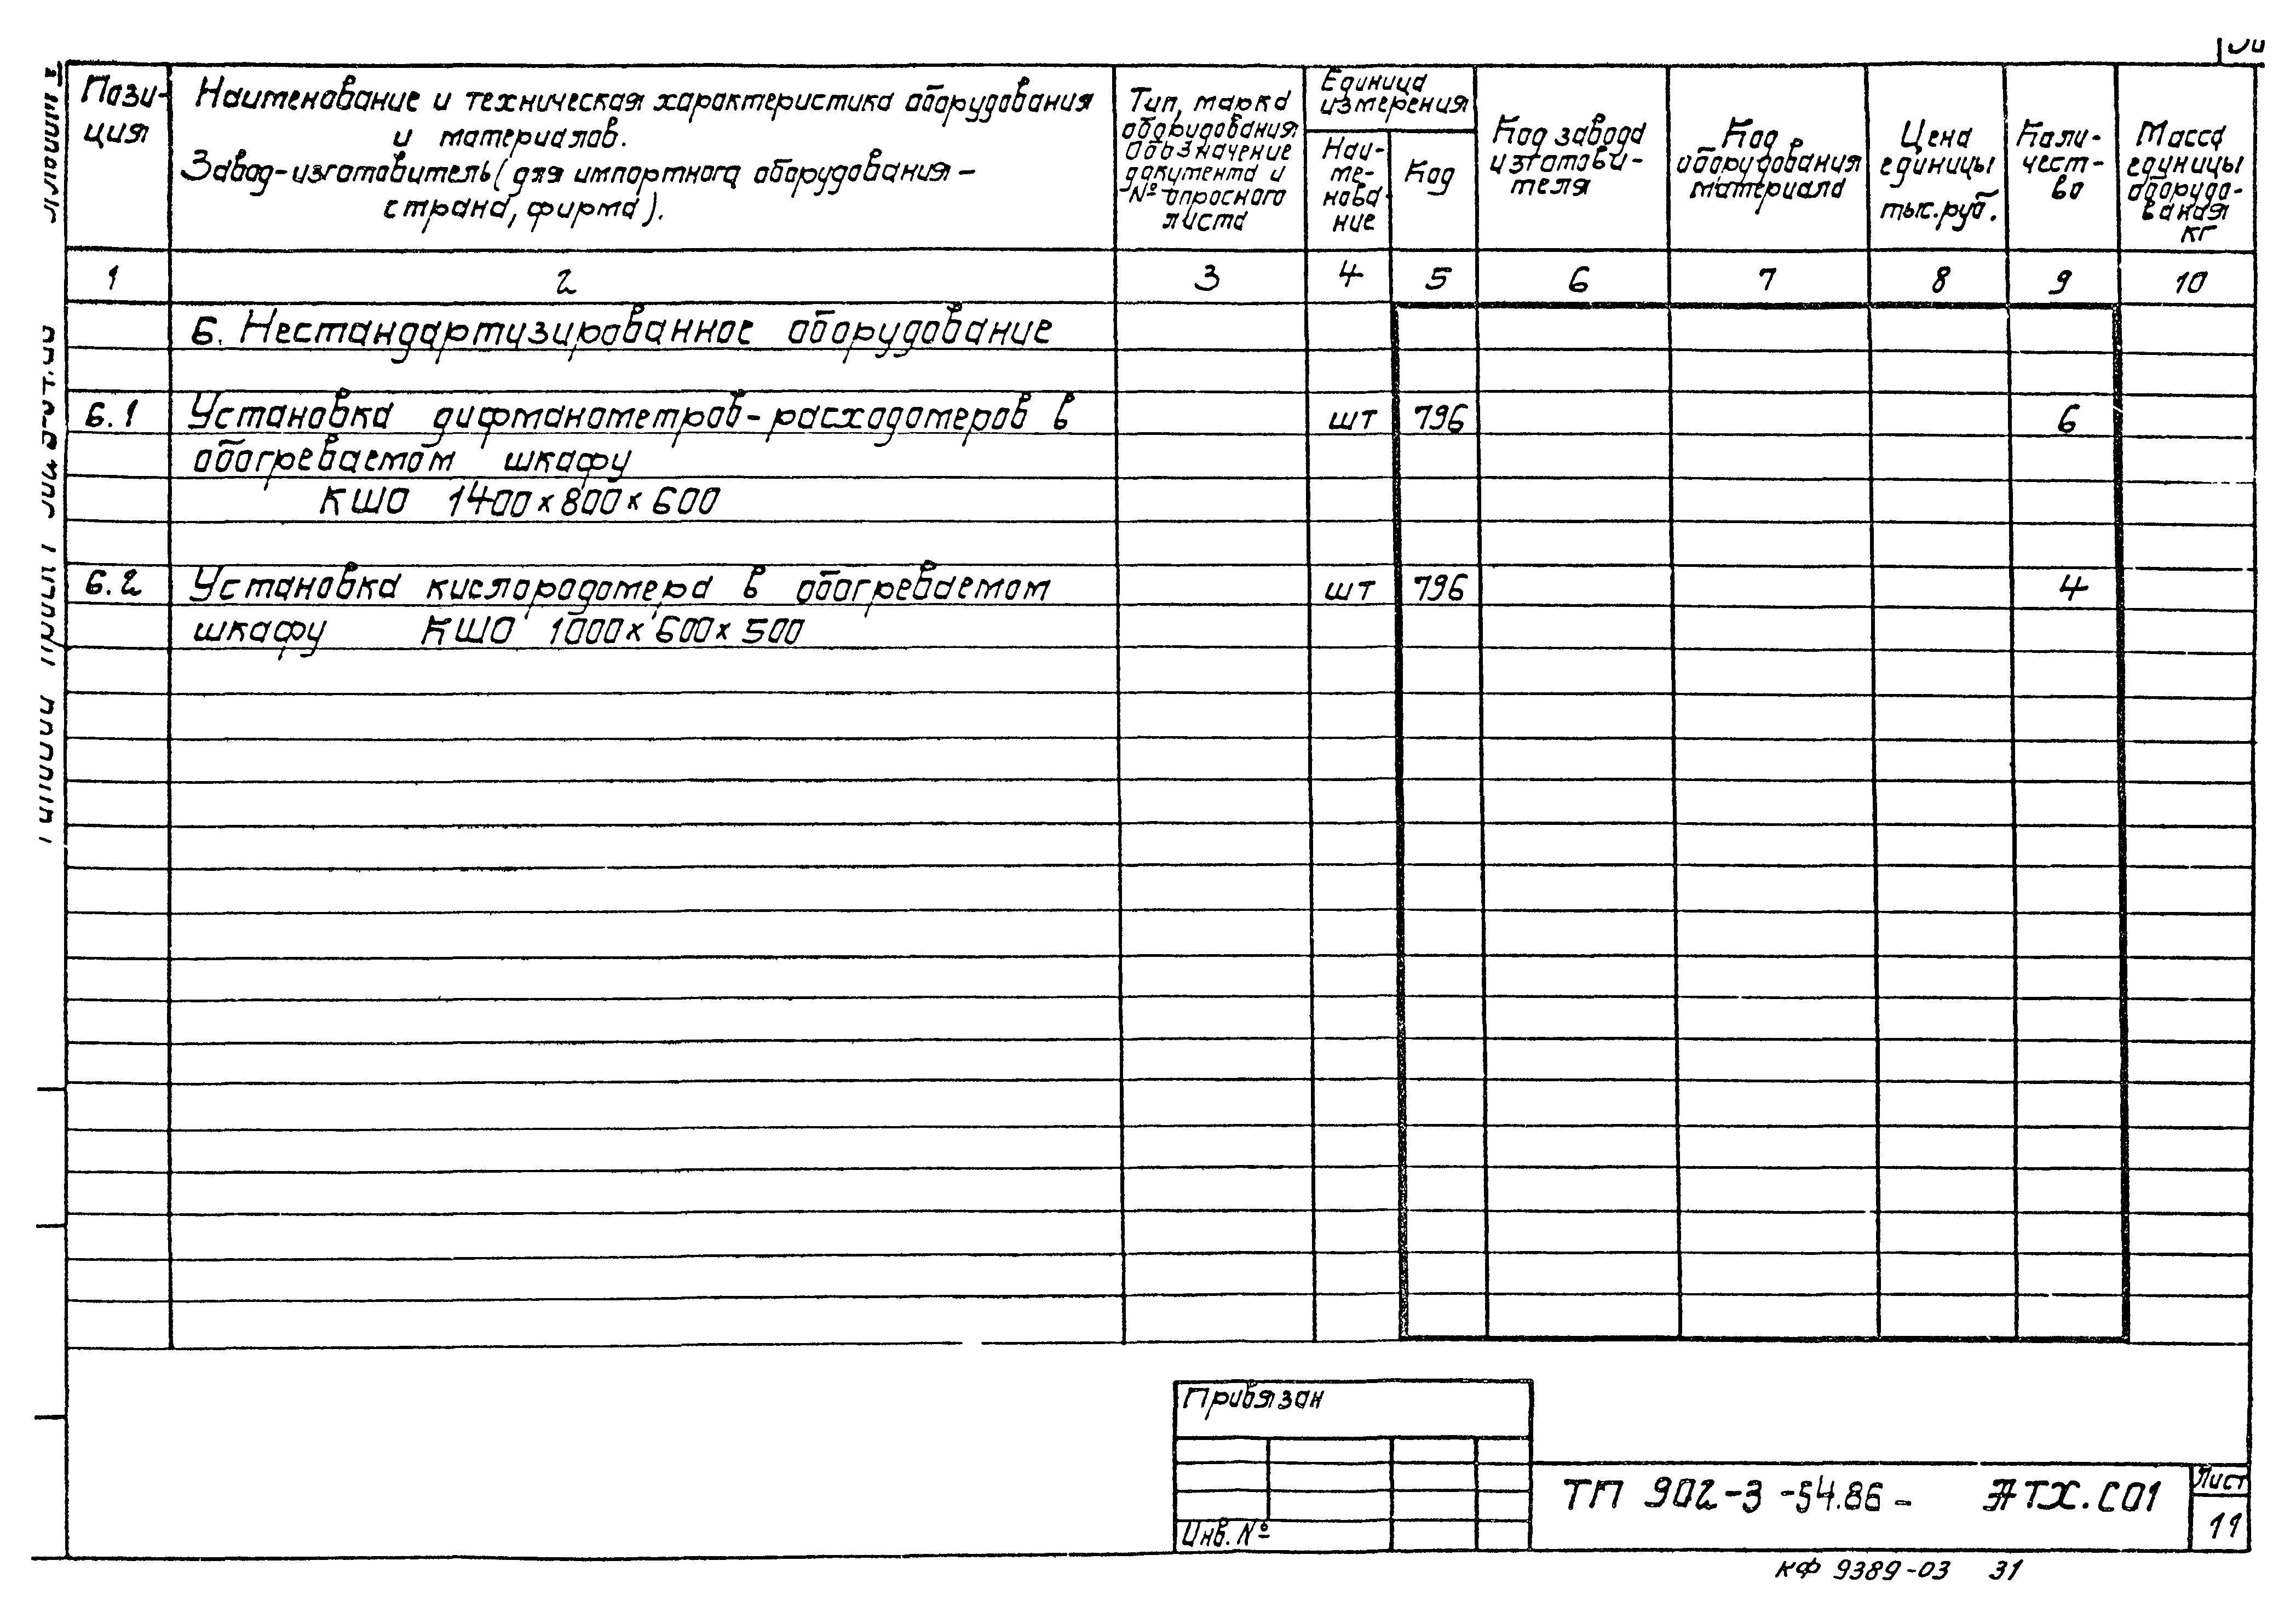 Пози-
ция
Наименование и техническая характеристика оборудования
и материалов.
Завод-изготовитель (для импортного оборудования -
страна, фирма).
Тип, марка
оборудования
Обозначение
документа и
№ опросного
листа
Единица
измерения
Наи-
ме-
нова-
ние
Код
Код завода
изготови-
теля
Код
оборудования
материала
Цена
единицы
тыс. руб.
Коли-
чест-
во
Масса
единицы
оборудо-
вания
кг
1 2 3 4 5 6 7 8 9 10
6. Нестандартизированное оборудование
6.1 Установка дифманометров-расходомеров в шт 796 6
обогреваемом шкафу
КШО 1400×800×600
6.2 Установка кислородомера в обогреваемом шт 796 4
шкафу КШО 1000×600×500
Привязан
Инв. №
ТП 902-3-54.86- АТХ.С01
Лист
11
КФ 9389-03 31